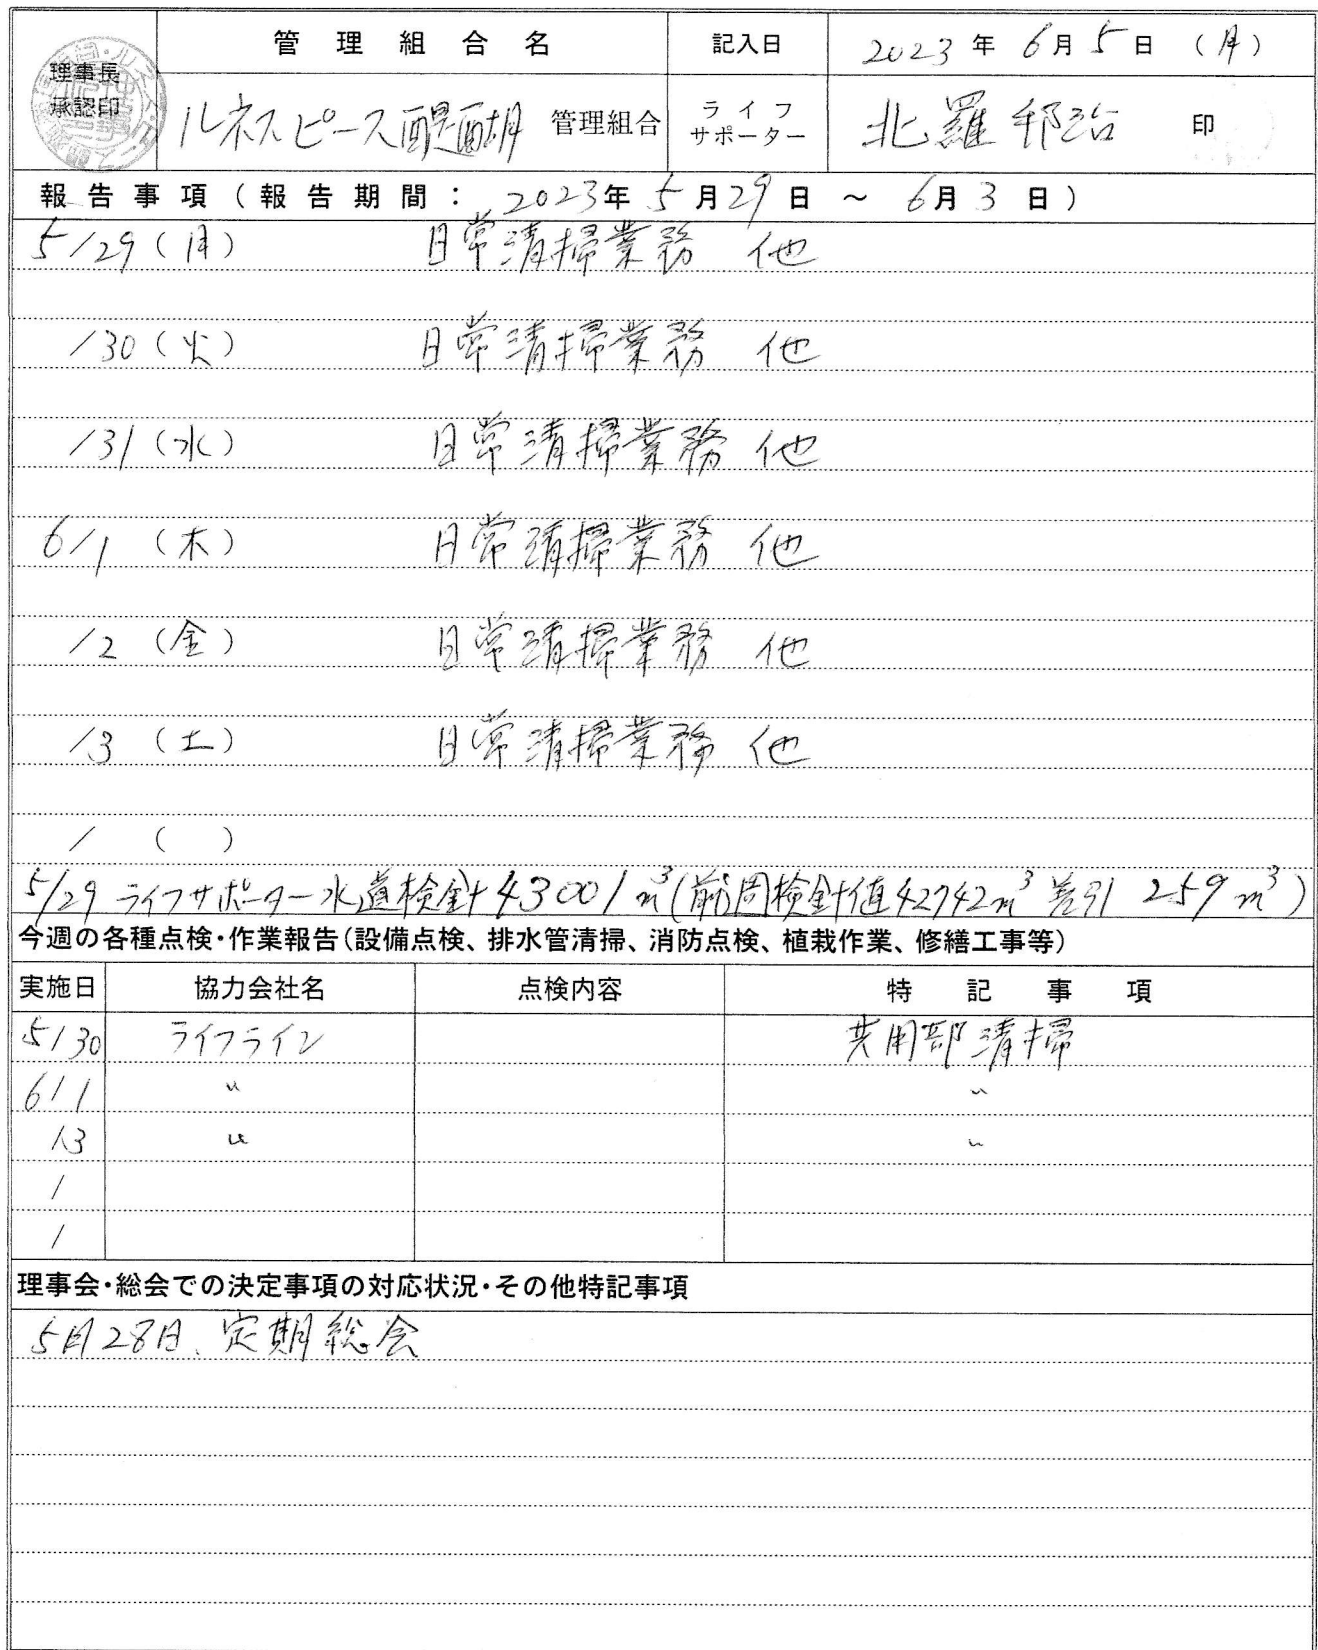 理事長
承認印
管理組合名
記入日
2023年 6月 5日 (月)
ルネスピース醍醐 管理組合
ライフ
サポーター
北羅 邦治 印
報告事項(報告期間: 2023年 5月29日 ~ 6月3日)
5/29(月) 日常清掃業務 他
/30(火) 日常清掃業務 他
/31(水) 日常清掃業務 他
6/1(木) 日常清掃業務 他
/2(金) 日常清掃業務 他
/3(土) 日常清掃業務 他
/ ( )
5/29 ライフサポーター水道検針 43001m³(前回検針値42742m³ 差引 259m³)
今週の各種点検・作業報告(設備点検、排水管清掃、消防点検、植栽作業、修繕工事等)
実施日 協力会社名 点検内容 特記事項
5/30 ライフライン 共用部清掃
6/1 〃 〃
/3 〃 〃
/
/
理事会・総会での決定事項の対応状況・その他特記事項
5月28日、定期総会